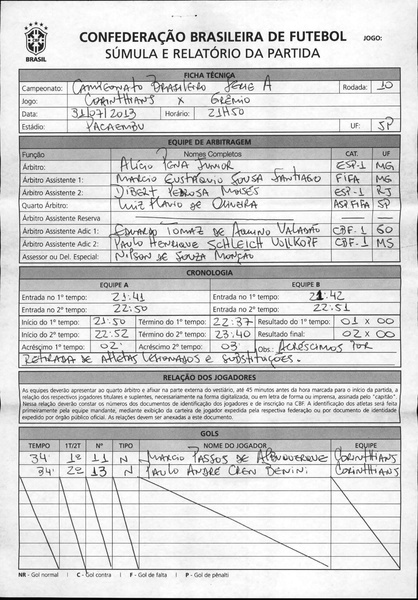 CBF
BRASIL
CONFEDERAÇÃO BRASILEIRA DE FUTEBOL JOGO:
SÚMULA E RELATÓRIO DA PARTIDA
FICHA TÉCNICA
Campeonato: CAMPEONATO BRASILEIRO SERIE A Rodada: 10
Jogo: CORINTHIANS X GRÊMIO
Data: 31/07/2013 Horário: 21H50
Estádio: PACAEMBU UF: SP
EQUIPE DE ARBITRAGEM
Função Nomes Completos CAT. UF
Árbitro: ALICIO PENA JUNIOR ESP-1 MG
Árbitro Assistente 1: MARCIO EUSTAQUIO SOUSA SANTIAGO FIFA MG
Árbitro Assistente 2: DIBERT PEDROSA MOISES ESP-1 RJ
Quarto Árbitro: LUIZ FLAVIO DE OLIVEIRA ASP FIFA SP
Árbitro Assistente Reserva
Árbitro Assistente Adic 1: EDUARDO TOMAZ DE AQUINO VALADÃO CBF-1 GO
Árbitro Assistente Adic 2: PAULO HENRIQUE SCHLEICH VOLLKOPF CBF-1 MS
Assessor ou Del. Especial: NILSON DE SOUZA MONÇÃO
CRONOLOGIA
EQUIPE A EQUIPE B
Entrada no 1º tempo: 21:41 Entrada no 1º tempo: 21:42
Entrada no 2º tempo: 22:50 Entrada no 2º tempo: 22:51
Início do 1º tempo: 21:50 Término do 1º tempo: 22:37 Resultado do 1º tempo: 01 X 00
Início do 2º tempo: 22:52 Término do 2º tempo: 23:40 Resultado final: 02 X 00
Acréscimo 1º tempo: 02' Acréscimo 2º tempo: 03' Obs: ACRÉSCIMOS POR
RETIRADA DE ATLETAS LESIONADOS E SUBSTITUIÇÕES.
RELAÇÃO DOS JOGADORES
As equipes deverão apresentar ao quarto árbitro e afixar na parte externa do vestiário, até 45 minutos antes da hora marcada para o início da partida, a
relação dos respectivos jogadores titulares e suplentes, necessariamente na forma digitalizada, ou em letra de forma ou imprensa, assinada pelo "capitão".
Nessa relação deverão constar os números dos documentos de identificação dos jogadores e de inscrição na CBF. A identificação dos atletas será feita
primeiramente pela equipe mandante, mediante exibição da carteira de jogador expedida pela respectiva federação ou por documento de identidade
expedido por órgão público oficial. As relações devem ser anexadas a este documento.
GOLS
TEMPO 1T/2T Nº TIPO NOME DO JOGADOR EQUIPE
34' 1º 11 N MARCIO PASSOS DE ALBUQUERQUE CORINTHIANS
34' 2º 13 N PAULO ANDRÉ CREN BENINI CORINTHIANS
NR - Gol normal | C - Gol contra | F - Gol de falta | P - Gol de pênalti